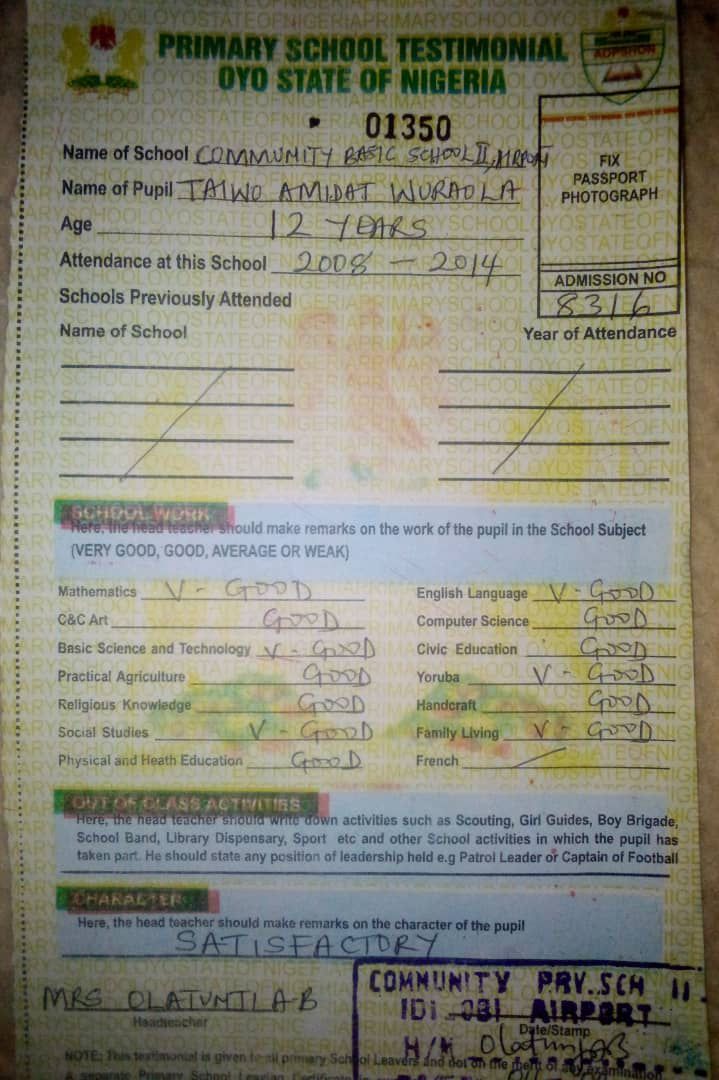 PRIMARY SCHOOL TESTIMONIAL
OYO STATE OF NIGERIA
ADPSHON
01350
Name of School COMMUNITY BASIC SCHOOL II, AIRPORT
FIX
PASSPORT
PHOTOGRAPH
Name of Pupil TAIWO AMIDAT WURAOLA
Age 12 YEARS
Attendance at this School 2008 - 2014
ADMISSION NO
8316
Schools Previously Attended
Name of School Year of Attendance
SCHOOL WORK
Here, the head teacher should make remarks on the work of the pupil in the School Subject
(VERY GOOD, GOOD, AVERAGE OR WEAK)
Mathematics V - GOOD English Language V - GOOD
C&C Art GOOD Computer Science GOOD
Basic Science and Technology V - GOOD Civic Education GOOD
Practical Agriculture GOOD Yoruba V - GOOD
Religious Knowledge GOOD Handcraft GOOD
Social Studies V - GOOD Family Living V - GOOD
Physical and Heath Education GOOD French
OUT OF CLASS ACTIVITIES
Here, the head teacher should write down activities such as Scouting, Girl Guides, Boy Brigade,
School Band, Library Dispensary, Sport etc and other School activities in which the pupil has
taken part. He should state any position of leadership held e.g Patrol Leader or Captain of Football
CHARACTER
Here, the head teacher should make remarks on the character of the pupil
SATISFACTORY
MRS OLATUNJI A-B
Headteacher
COMMUNITY PRY. SCH II
IDI OBI AIRPORT
Date/Stamp
H/M
NOTE: This testimonial is given to all primary School Leavers and not on the merit of any examination